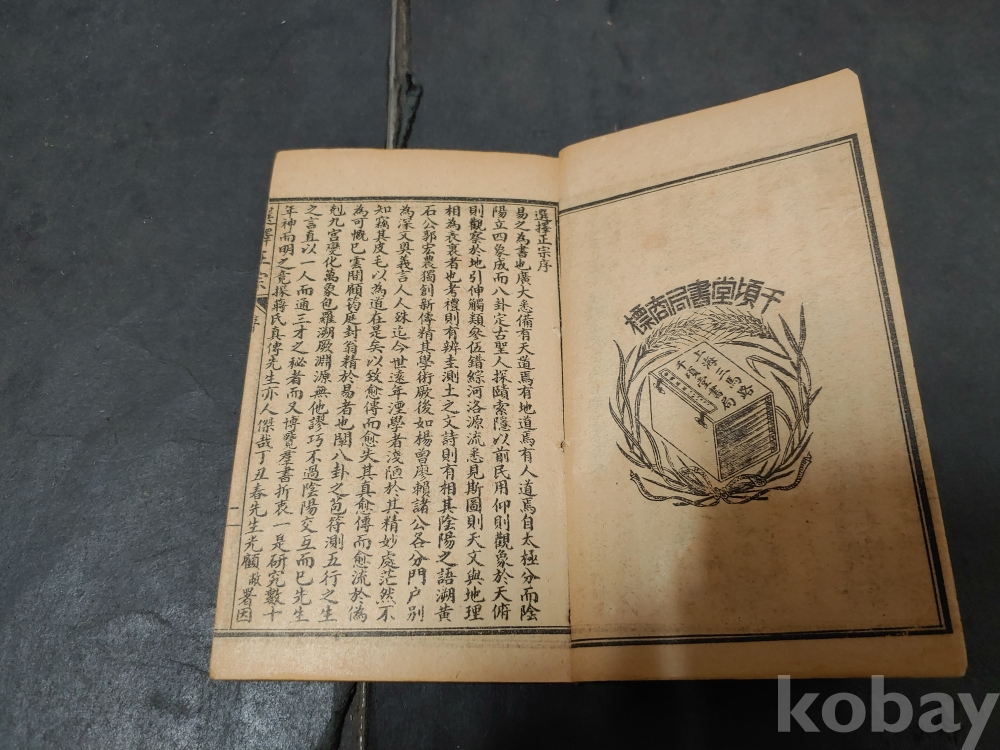 千頃堂書局商標
上海三馬路
千頃堂書局
選擇正宗序
易之為書也廣大悉備有天道焉有地道焉有人道焉自太極分而陰
陽立四象成而八卦定古聖人探賾索隱以前民用仰則觀象於天俯
則觀察於地引伸觸類參伍錯綜河洛源流悉見斯圖則天文與地理
相為表裏者也考禮則有辨圭測土之文詩則有相其陰陽之語溯黃
石公郭宏農獨創新傳精其學術厥後如楊曾廖賴諸公各分門戶別
為深又奧義言人人殊迄今世遠年湮學者淺陋於其精妙處茫然不
知竊其皮毛以為道在是矣以致愈傳而愈失其真愈傳而愈流於偽
為可慨已雲間顧筠庭封翁精於易者也闡八卦之苞符測五行之生
剋九宮變化萬象包羅溯厥淵源無他謬巧不過陰陽交互而已先生
之言直以一人而通三才之秘者而又博覽羣書折衷一是研究數十
年神而明之竟探蔣氏真傳先生亦人傑哉丁丑春先生先顧敝署因
選擇正宗
序
一
kobay